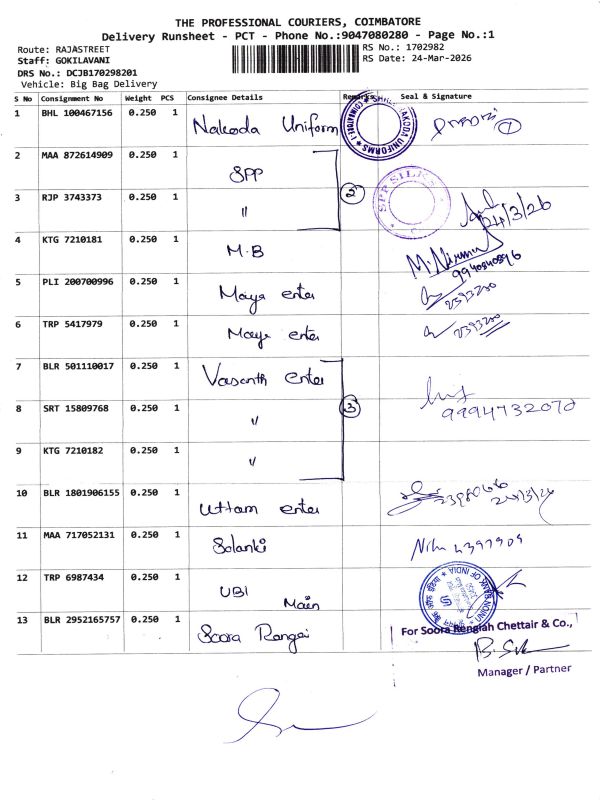 THE PROFESSIONAL COURIERS, COIMBATORE
Delivery Runsheet - PCT - Phone No.:9047080280 - Page No.:1
Route: RAJASTREET
RS No.: 1702982
Staff: GOKILAVANI
RS Date: 24-Mar-2026
DRS No.: DCJB170298201
Vehicle: Big Bag Delivery
S No Consignment No Weight PCS Consignee Details Remarks Seal & Signature
1 BHL 100467156 0.250 1 Nakoda Uniform 1
2 MAA 872614909 0.250 1 SPP
SPP SILKS
3 RJP 3743373 0.250 1 " 2 24/3/26
4 KTG 7210181 0.250 1 M.B M. Nirmal
9940840896
5 PLI 200700996 0.250 1 Maya enter 2393200
6 TRP 5417979 0.250 1 Maya enter 2393200
7 BLR 501110017 0.250 1 Vasanth enter
8 SRT 15809768 0.250 1 " 3 9994732070
9 KTG 7210182 0.250 1 "
10 BLR 1801906155 0.250 1 Uttam enter 24/3/26
11 MAA 717052131 0.250 1 Solanki
12 TRP 6987434 0.250 1 UBI Main
UNION BANK OF INDIA
13 BLR 2952165757 0.250 1 Soora Rangai
For Soora Rengiah Chettair & Co.,
Manager / Partner